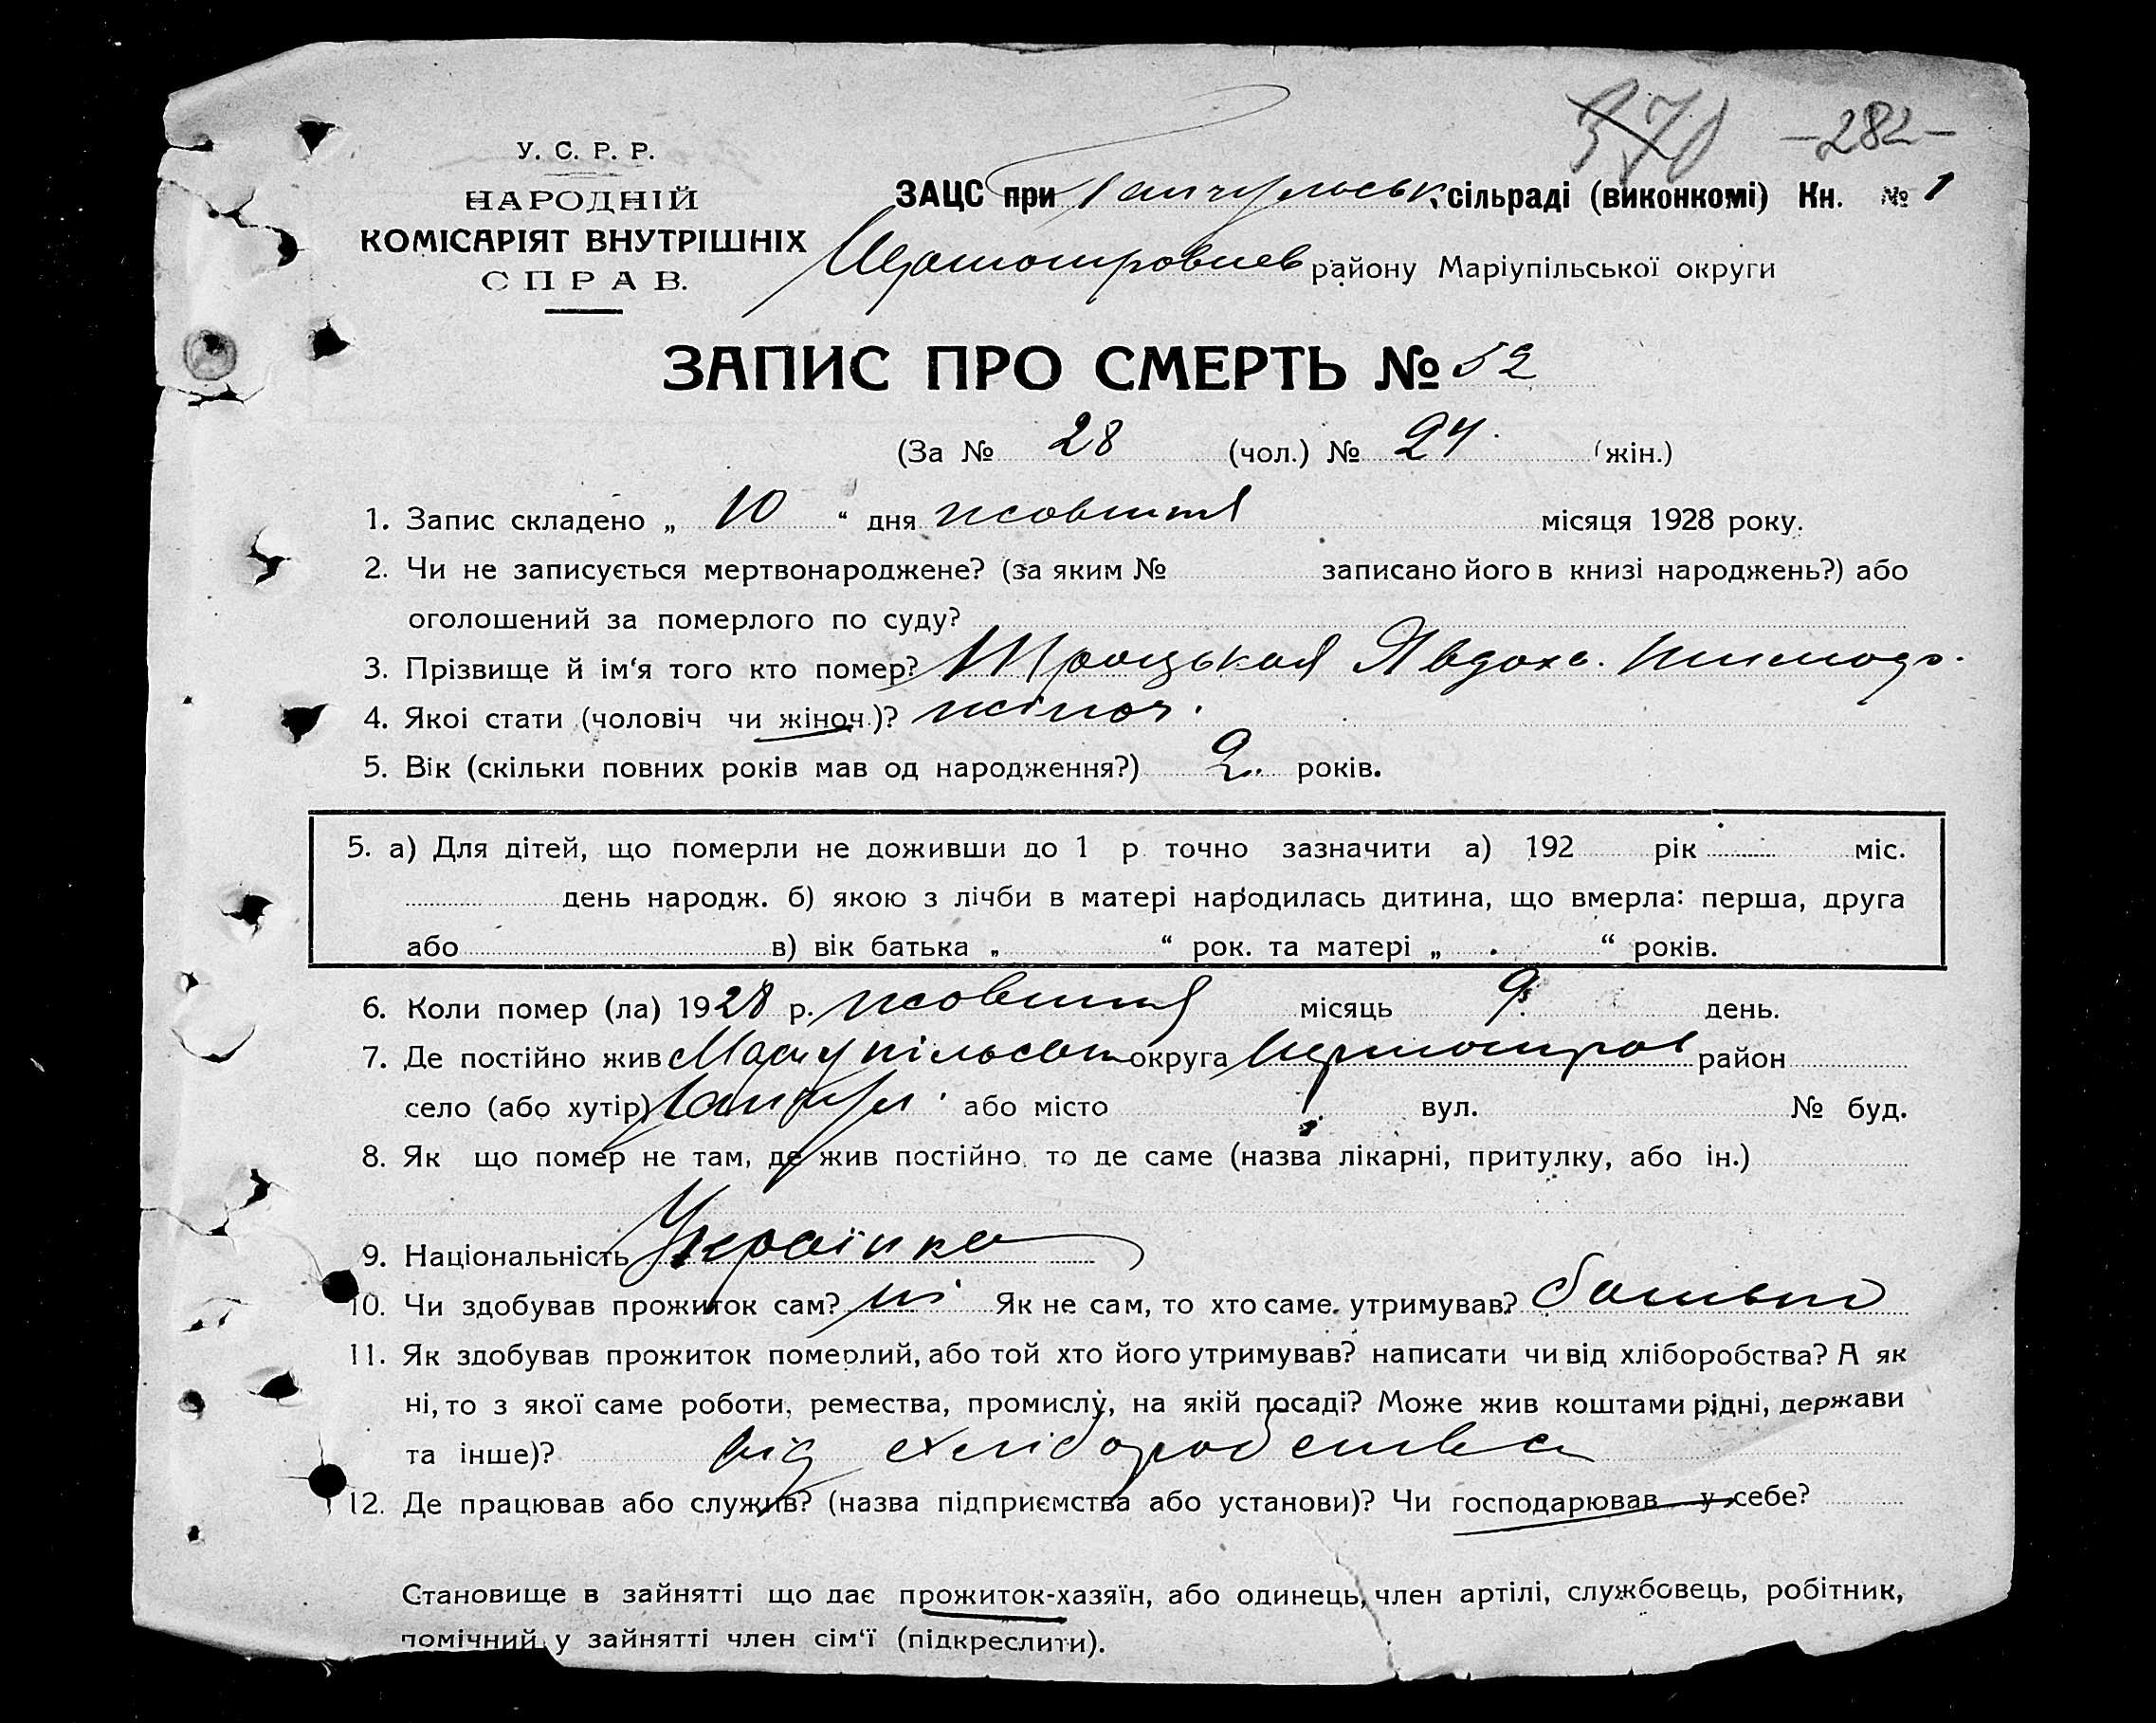 370 -282-
У. С. Р. Р.
НАРОДНІЙ
КОМІСАРІЯТ ВНУТРІШНІХ
СПРАВ.
ЗАЦС при Гайчульськ. сільраді (виконкомі) Кн. № 1
району Маріупільської округи
ЗАПИС ПРО СМЕРТЬ № 52
(За № 28 (чол.) № 24. (жін.)
1. Запис складено „ 10 “ дня жовтня місяця 1928 року.
2. Чи не записується мертвонароджене? (за яким № записано його в книзі народжень?) або
оголошений за померлого по суду?
3. Прізвище й ім‘я того кто помер? Троцькая Явдох. Тимофо.
4. Якоі стати (чоловіч чи жіноч.)? жіноч.
5. Вік (скільки повних років мав од народження?) 2. років.
5. а) Для дітей, що померли не доживши до 1 р. точно зазначити а) 192 рік міс.
день народж. б) якою з лічби в матері народилась дитина, що вмерла: перша, друга
або в) вік батька „ “ рок. та матері „ “ років.
6. Коли помер (ла) 1928 р. жовтня місяць 9. день.
7. Де постійно жив Маріупільськ округа район
село (або хутір) Гайчул. або місто вул. № буд.
8. Як що помер не там, де жив постійно, то де саме (назва лікарні, притулку, або ін.)
9. Національність Українка
10. Чи здобував прожиток сам? ні Як не сам, то хто саме утримував? батько
11. Як здобував прожиток померлий, або той хто його утримував? написати чи від хліборобства? А як
ні, то з якої саме роботи, ремества, промислу, на якій посаді? Може жив коштами рідні, держави
та інше)? від хліборобства
12. Де працював або служив? (назва підприємства або установи)? Чи господарював у себе?
Становище в зайнятті що дає прожиток-хазяїн, або одинець, член артілі, службовець, робітник,
помічний у зайнятті член сім‘ї (підкреслити).